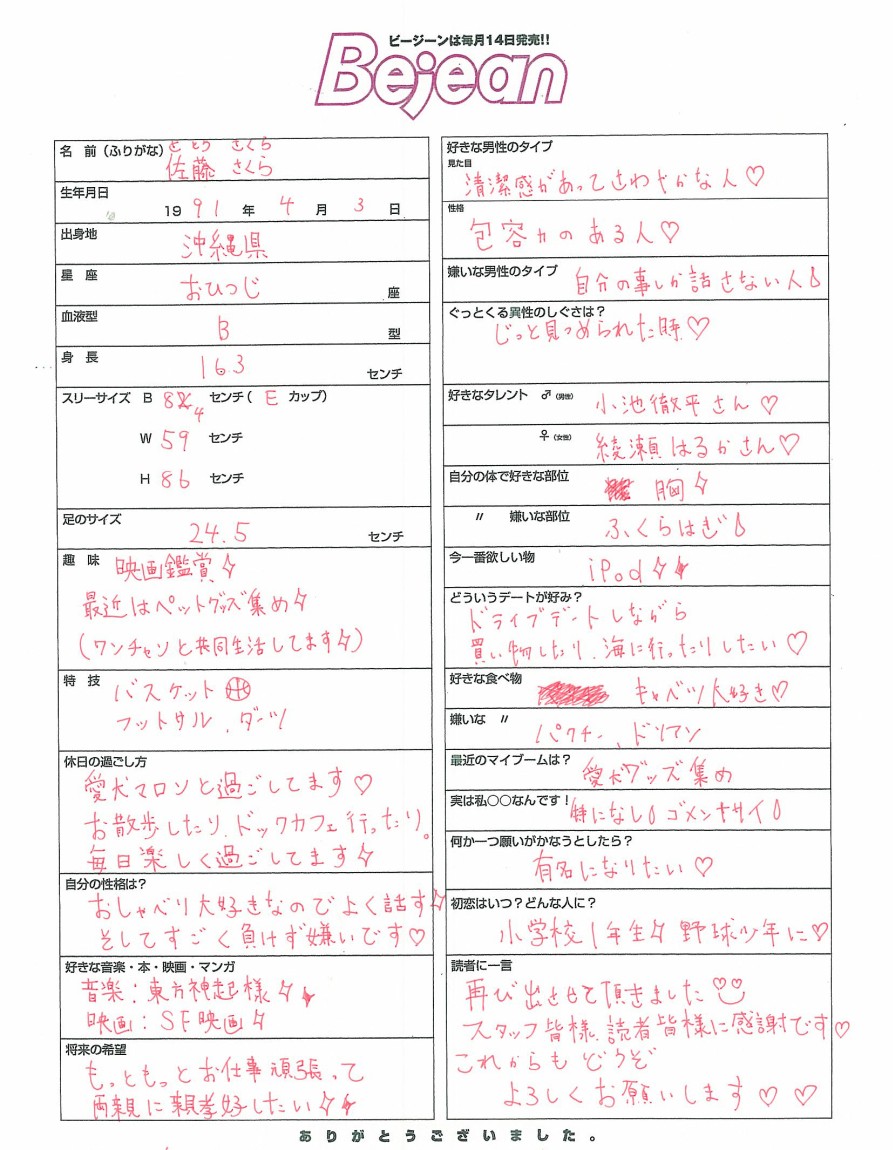 ビージーンは毎月14日発売!!
Bejean
名 前（ふりがな） さとう さくら
佐藤 さくら
生年月日
19 91 年 4 月 3 日
出身地
沖縄県
星 座
おひつじ 座
血液型
B 型
身 長
163 センチ
スリーサイズ B 84 センチ( E カップ)
W 59 センチ
H 86 センチ
足のサイズ
24.5 センチ
趣 味 映画鑑賞
最近はペットグッズ集め
(ワンチャンと共同生活してます)
特 技 バスケット
フットサル、ダーツ
休日の過ごし方
愛犬マロンと過ごしてます♡
お散歩したり、ドックカフェ行ったり。
毎日楽しく過ごしてます
自分の性格は?
おしゃべり大好きなのでよく話す
そしてすごく負けず嫌いです♡
好きな音楽・本・映画・マンガ
音楽:東方神起様
映画:SF映画
将来の希望
もっともっとお仕事頑張って
両親に親孝好したい
好きな男性のタイプ
見た目
清潔感があってさわやかな人♡
性格
包容力のある人♡
嫌いな男性のタイプ 自分の事しか話さない人
ぐっとくる異性のしぐさは?
じっと見つめられた時♡
好きなタレント ♂(男性) 小池徹平さん♡
♀(女性) 綾瀬はるかさん♡
自分の体で好きな部位 胸
〃 嫌いな部位 ふくらはぎ
今一番欲しい物
iPod
どういうデートが好み?
ドライブデートしながら
買い物したり、海に行ったりしたい♡
好きな食べ物 キャベツ大好き♡
嫌いな 〃
パクチー、ドリアン
最近のマイブームは? 愛犬グッズ集め
実は私○○なんです! 特になし ゴメンナサイ
何か一つ願いがかなうとしたら?
有名になりたい♡
初恋はいつ?どんな人に?
小学校1年生 野球少年に♡
読者に一言
再び出させて頂きました♡
スタッフ皆様、読者皆様に感謝です♡
これからもどうぞ
よろしくお願いします♡♡
ありがとうございました。